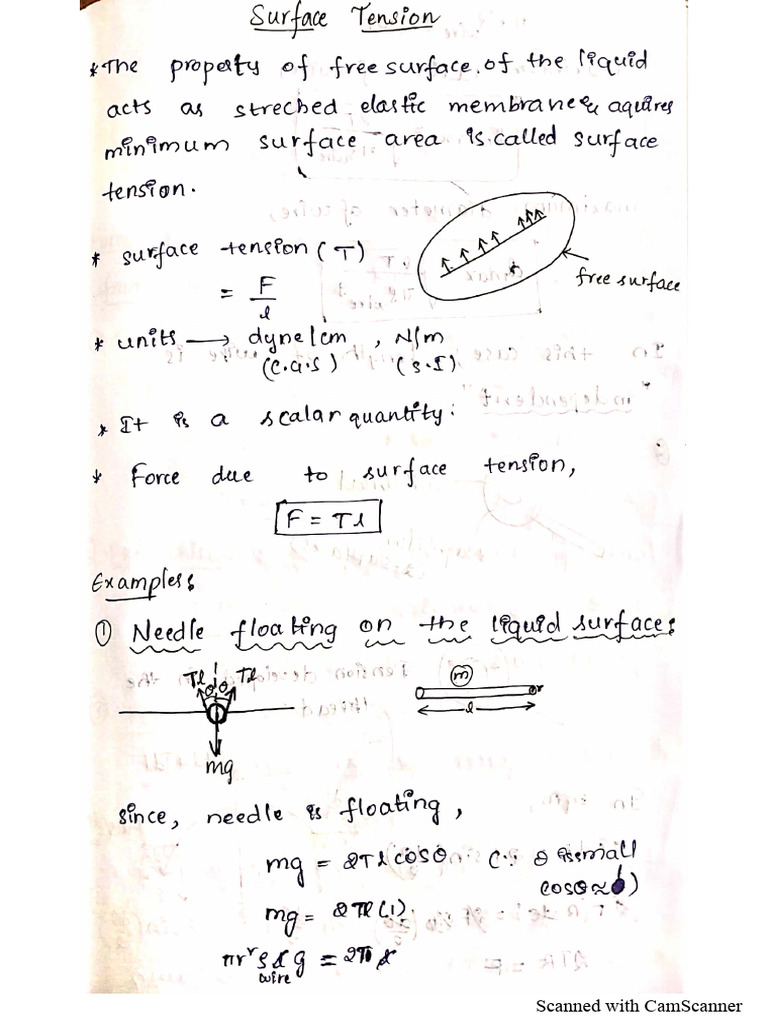 Surface Tension
* The property of free surface of the liquid
acts as streched elastic membrane & aquires
minimum surface area is called surface
tension.
* surface tension (T)
= F/l
free surface
* units → dyne/cm , N/m
(C.G.S) (S.I)
* It is a scalar quantity.
* Force due to surface tension,
F = Tl
Examples:
① Needle floating on the liquid surface:
Tl θ θ Tl
m
r
l
mg
since, needle is floating,
mg = 2Tl cosθ (∵ θ is small
cosθ ≈ )
mg = 2Tl (1).
πr² ρ l g = 2T l
wire
Scanned with CamScanner